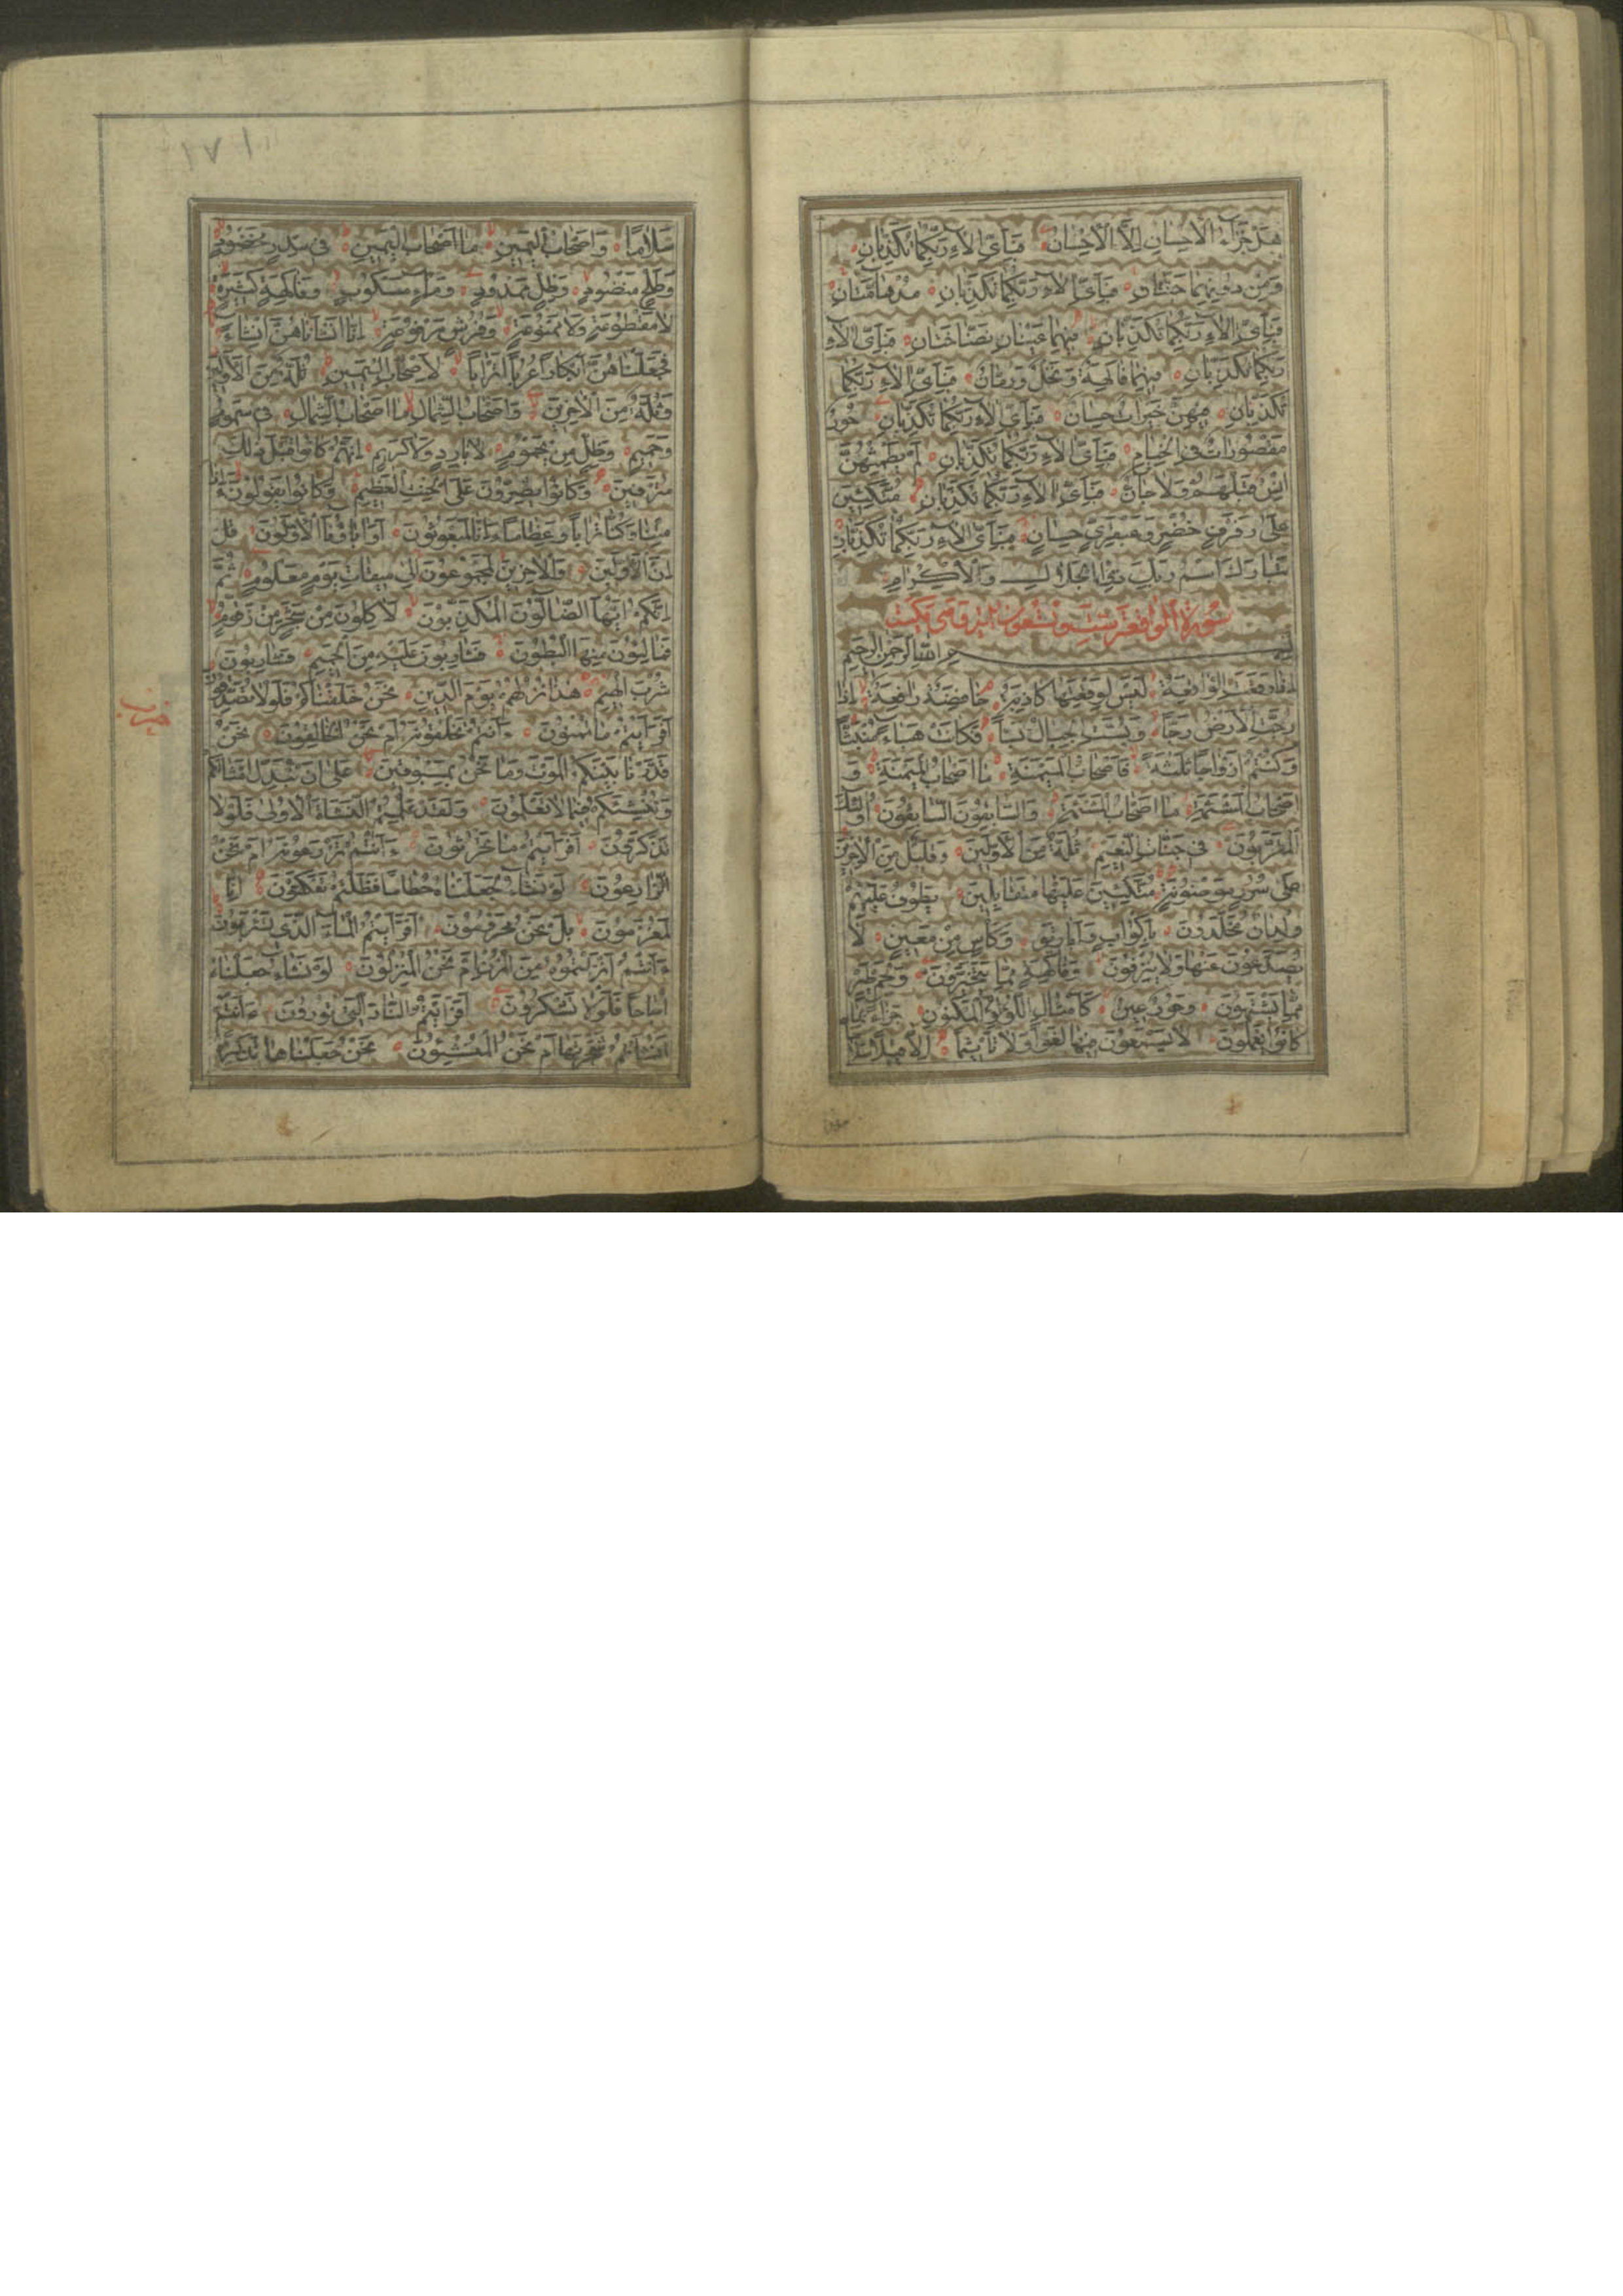 هَلْ جَزَاءُ الْاِحْسَانِ اِلَّا الْاِحْسَانُ فَبِاَىِّ اٰلَاءِ رَبِّكُمَا تُكَذِّبَانِ
وَمِنْ دُونِهِمَا جَنَّتَانِ فَبِاَىِّ اٰلَاءِ رَبِّكُمَا تُكَذِّبَانِ مُدْهَامَّتَانِ
فَبِاَىِّ اٰلَاءِ رَبِّكُمَا تُكَذِّبَانِ فِيهِمَا عَيْنَانِ نَضَّاخَتَانِ فَبِاَىِّ اٰلَاءِ
رَبِّكُمَا تُكَذِّبَانِ فِيهِمَا فَاكِهَةٌ وَنَخْلٌ وَرُمَّانٌ فَبِاَىِّ اٰلَاءِ رَبِّكُمَا
تُكَذِّبَانِ فِيهِنَّ خَيْرَاتٌ حِسَانٌ فَبِاَىِّ اٰلَاءِ رَبِّكُمَا تُكَذِّبَانِ حُورٌ
مَقْصُورَاتٌ فِى الْخِيَامِ فَبِاَىِّ اٰلَاءِ رَبِّكُمَا تُكَذِّبَانِ لَمْ يَطْمِثْهُنَّ
اِنْسٌ قَبْلَهُمْ وَلَا جَانٌّ فَبِاَىِّ اٰلَاءِ رَبِّكُمَا تُكَذِّبَانِ مُتَّكِئِينَ
عَلٰى رَفْرَفٍ خُضْرٍ وَعَبْقَرِىٍّ حِسَانٍ فَبِاَىِّ اٰلَاءِ رَبِّكُمَا تُكَذِّبَانِ
تَبَارَكَ اسْمُ رَبِّكَ ذِى الْجَلَالِ وَالْاِكْرَامِ
سورة الواقعة ست وتسعون اية وهى مكية
بِسْمِ اللّٰهِ الرَّحْمٰنِ الرَّحِيمِ
اِذَا وَقَعَتِ الْوَاقِعَةُ لَيْسَ لِوَقْعَتِهَا كَاذِبَةٌ خَافِضَةٌ رَافِعَةٌ اِذَا
رُجَّتِ الْاَرْضُ رَجًّا وَبُسَّتِ الْجِبَالُ بَسًّا فَكَانَتْ هَبَاءً مُنْبَثًّا
وَكُنْتُمْ اَزْوَاجًا ثَلٰثَةً فَاَصْحَابُ الْمَيْمَنَةِ مَا اَصْحَابُ الْمَيْمَنَةِ وَ
اَصْحَابُ الْمَشْئَمَةِ مَا اَصْحَابُ الْمَشْئَمَةِ وَالسَّابِقُونَ السَّابِقُونَ اُولٰئِكَ
الْمُقَرَّبُونَ فِى جَنَّاتِ النَّعِيمِ ثُلَّةٌ مِنَ الْاَوَّلِينَ وَقَلِيلٌ مِنَ الْاٰخِرِينَ
عَلٰى سُرُرٍ مَوْضُونَةٍ مُتَّكِئِينَ عَلَيْهَا مُتَقَابِلِينَ يَطُوفُ عَلَيْهِمْ
وِلْدَانٌ مُخَلَّدُونَ بِاَكْوَابٍ وَاَبَارِيقَ وَكَاْسٍ مِنْ مَعِينٍ لَا
يُصَدَّعُونَ عَنْهَا وَلَا يُنْزِفُونَ وَفَاكِهَةٍ مِمَّا يَتَخَيَّرُونَ وَلَحْمِ طَيْرٍ
مِمَّا يَشْتَهُونَ وَحُورٌ عِينٌ كَاَمْثَالِ اللُّؤْلُؤِ الْمَكْنُونِ جَزَاءً بِمَا
كَانُوا يَعْمَلُونَ لَا يَسْمَعُونَ فِيهَا لَغْوًا وَلَا تَاْثِيمًا اِلَّا قِيلًا سَلَامًا
١٧١
سَلَامًا وَاَصْحَابُ الْيَمِينِ مَا اَصْحَابُ الْيَمِينِ فِى سِدْرٍ مَخْضُودٍ
وَطَلْحٍ مَنْضُودٍ وَظِلٍّ مَمْدُودٍ وَمَاءٍ مَسْكُوبٍ وَفَاكِهَةٍ كَثِيرَةٍ
لَا مَقْطُوعَةٍ وَلَا مَمْنُوعَةٍ وَفُرُشٍ مَرْفُوعَةٍ اِنَّا اَنْشَاْنَاهُنَّ اِنْشَاءً
فَجَعَلْنَاهُنَّ اَبْكَارًا عُرُبًا اَتْرَابًا لِاَصْحَابِ الْيَمِينِ ثُلَّةٌ مِنَ الْاَوَّلِينَ
وَثُلَّةٌ مِنَ الْاٰخِرِينَ وَاَصْحَابُ الشِّمَالِ مَا اَصْحَابُ الشِّمَالِ فِى سَمُومٍ
وَحَمِيمٍ وَظِلٍّ مِنْ يَحْمُومٍ لَا بَارِدٍ وَلَا كَرِيمٍ اِنَّهُمْ كَانُوا قَبْلَ ذٰلِكَ
مُتْرَفِينَ وَكَانُوا يُصِرُّونَ عَلَى الْحِنْثِ الْعَظِيمِ وَكَانُوا يَقُولُونَ اَئِذَا
مِتْنَا وَكُنَّا تُرَابًا وَعِظَامًا ءَاِنَّا لَمَبْعُوثُونَ اَوَاٰبَاؤُنَا الْاَوَّلُونَ قُلْ
اِنَّ الْاَوَّلِينَ وَالْاٰخِرِينَ لَمَجْمُوعُونَ اِلٰى مِيقَاتِ يَوْمٍ مَعْلُومٍ ثُمَّ
اِنَّكُمْ اَيُّهَا الضَّالُّونَ الْمُكَذِّبُونَ لَاٰكِلُونَ مِنْ شَجَرٍ مِنْ زَقُّومٍ
فَمَالِئُونَ مِنْهَا الْبُطُونَ فَشَارِبُونَ عَلَيْهِ مِنَ الْحَمِيمِ فَشَارِبُونَ
شُرْبَ الْهِيمِ هٰذَا نُزُلُهُمْ يَوْمَ الدِّينِ نَحْنُ خَلَقْنَاكُمْ فَلَوْلَا تُصَدِّقُونَ
حزب
اَفَرَاَيْتُمْ مَا تُمْنُونَ ءَاَنْتُمْ تَخْلُقُونَهُ اَمْ نَحْنُ الْخَالِقُونَ نَحْنُ
قَدَّرْنَا بَيْنَكُمُ الْمَوْتَ وَمَا نَحْنُ بِمَسْبُوقِينَ عَلٰى اَنْ نُبَدِّلَ اَمْثَالَكُمْ
وَنُنْشِئَكُمْ فِيمَا لَا تَعْلَمُونَ وَلَقَدْ عَلِمْتُمُ النَّشْاَةَ الْاُولٰى فَلَوْلَا
تَذَكَّرُونَ اَفَرَاَيْتُمْ مَا تَحْرُثُونَ ءَاَنْتُمْ تَزْرَعُونَهُ اَمْ نَحْنُ
الزَّارِعُونَ لَوْ نَشَاءُ لَجَعَلْنَاهُ حُطَامًا فَظَلْتُمْ تَفَكَّهُونَ اِنَّا
لَمُغْرَمُونَ بَلْ نَحْنُ مَحْرُومُونَ اَفَرَاَيْتُمُ الْمَاءَ الَّذِى تَشْرَبُونَ
ءَاَنْتُمْ اَنْزَلْتُمُوهُ مِنَ الْمُزْنِ اَمْ نَحْنُ الْمُنْزِلُونَ لَوْ نَشَاءُ جَعَلْنَاهُ
اُجَاجًا فَلَوْلَا تَشْكُرُونَ اَفَرَاَيْتُمُ النَّارَ الَّتِى تُورُونَ ءَاَنْتُمْ
اَنْشَاْتُمْ شَجَرَتَهَا اَمْ نَحْنُ الْمُنْشِئُونَ نَحْنُ جَعَلْنَاهَا تَذْكِرَةً